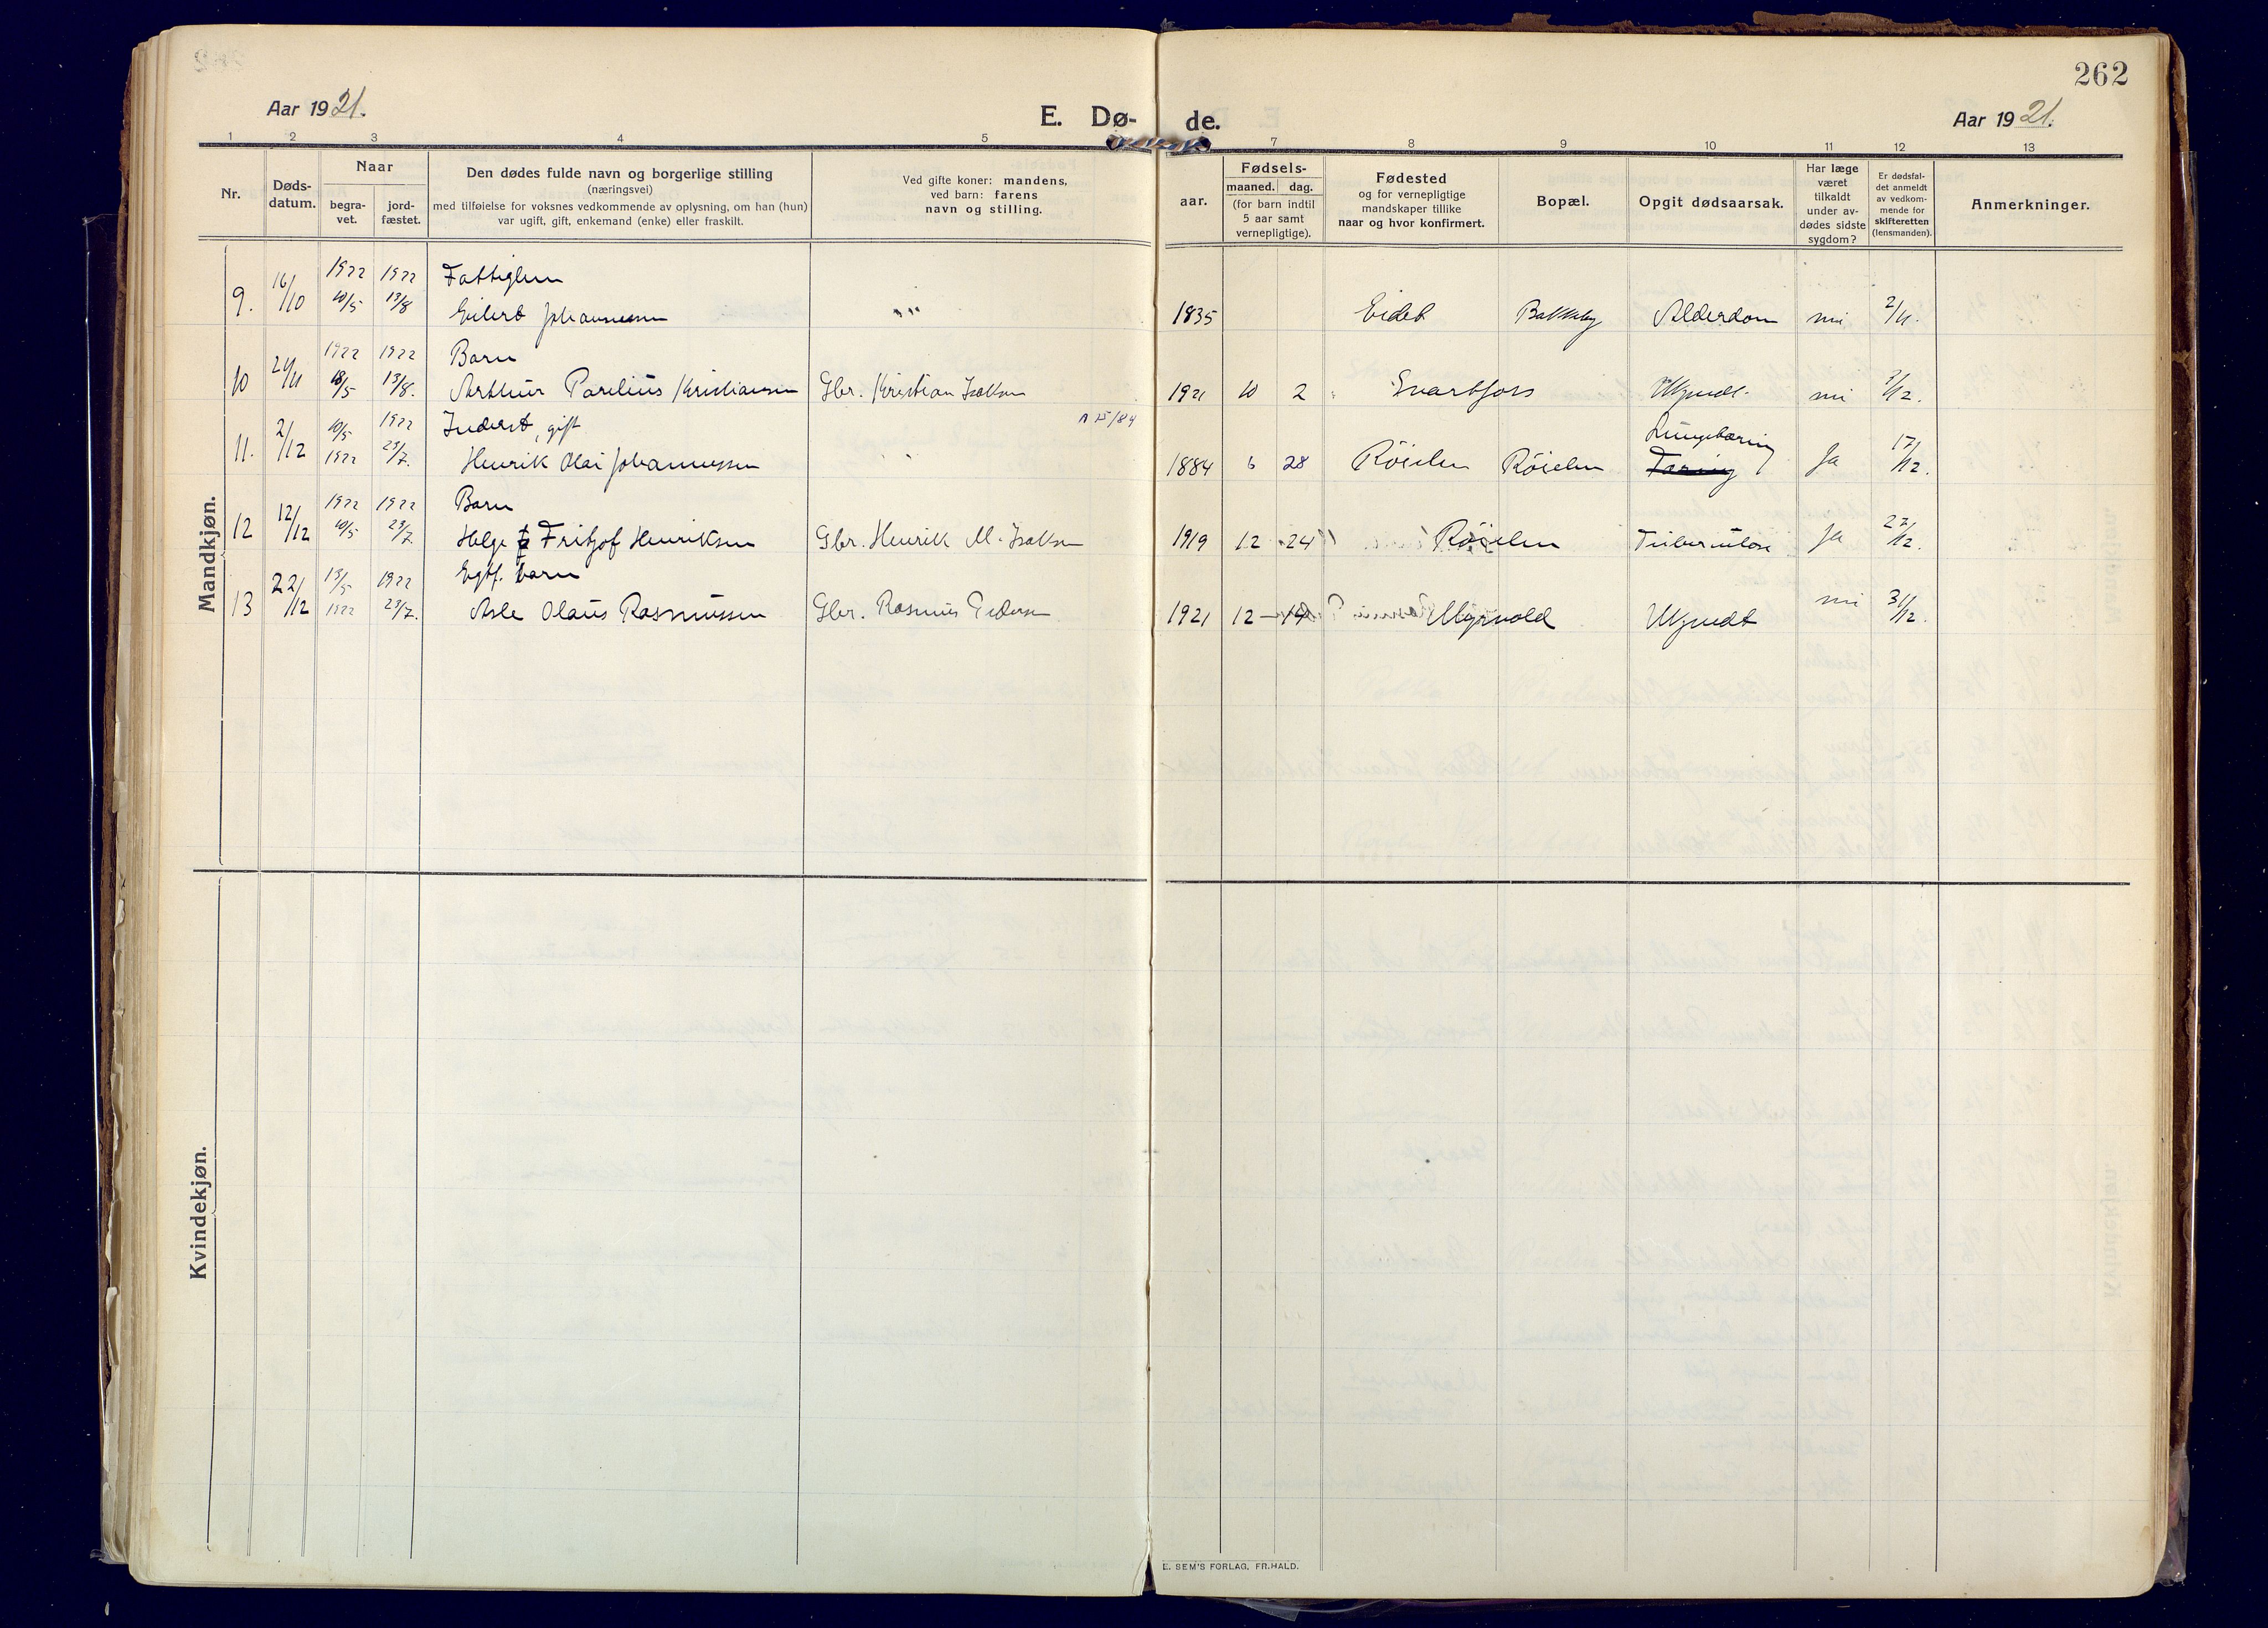 262
Aar 1921.
E. Dø-
de.
Aar 1921.
1 2 3 4 5 7 8 9 10 11 12 13
Nr.
Døds-
datum.
Naar
begra-
vet.
jord-
fæstet.
Den dødes fulde navn og borgerlige stilling
(næringsvei)
med tilføielse for voksnes vedkommende av oplysning, om han (hun)
var ugift, gift, enkemand (enke) eller fraskilt.
Ved gifte koner: mandens,
ved barn: farens
navn og stilling.
aar.
Fødsels-
maaned. dag.
(for barn indtil
5 aar samt
vernepligtige).
Fødested
og for vernepligtige
mandskaper tillike
naar og hvor konfirmert.
Bopæl.
Opgit dødsaarsak.
Har læge
været
tilkaldt
under av-
dødes sidste
sygdom?
Er dødsfal-
det anmeldt
av vedkom-
mende for
skifteretten
(lensmanden).
Anmerkninger.
Mandkjøn.
1922 1922 Fattiglem
9. 16/10 10/5 13/8 Eilert Johannessen " 1835 Eidet Bakkeby Alderdom nei 2/11.
1922 1922 Barn
10 21/11 18/5 13/8. Arthur Parelius Kristiansen Gbr. Kristian Isaksen 1921 10 2 Svartfors Ukjendt. nei 3/12.
10/5 1922 Inderst, gift
11. 2/12 1922 23/7. Henrik Olai Johannessen 1884 6 28 Røielen Røielen Lungetæring Tæring Ja 17/12.
1922 1922 Barn
12 12/12 10/5 23/7 Helge Fritjof Henriksen Gbr. Henrik M. Isaksen 1919 12 24 Røielen Tuberculose Ja 27/12.
13/5 1922 Egtf. barn
13 22/12 1922 23/7. Asle Olaus Rasmussen Gbr. Rasmus Pedersen 1921 12 – 14 Myrvold Ukjendt nei 31/12.
Kvindekjøn.
E. SEM'S FORLAG, FR.HALD.